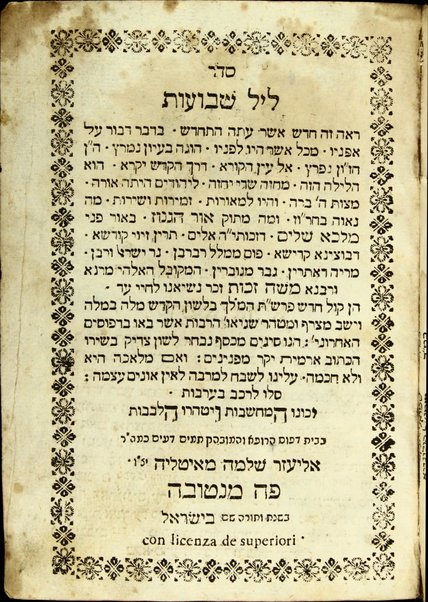 סדר
ליל שבועות
ראה זה חדש אשר עתה התחדש · בדבר דבור על
אפניו · מכל אשר היו לפניו · הוגה בעיון נמרץ · ה"ן
הז"ון נפרץ · אל עין הקורא · דרך הקדש יקרא · הוא
הלילה הזה · מחזה שדי יחזה · ליהודים היתה אורה ·
מצות ה' ברה · והיו למאורות · זמירות ושירות · מה
נאוה בחר"וז · ומה מתוק אור הגנוז · באור פני
מלכא שלים · דוכתי"ה אלים · תרין זיוי קודשא ·
דבוצינא קדישא · פום ממלל רברבן · נר ישרא' ורבן ·
מריה דאתרין · גבר מגוברין · המקובל האלהי מרנא
ורבנא משה זכות זכר נשיאנו לחיי עד ·
הן קול חדש פרש"ת המלך בלשון הקדש מלה במלה
וישב מצרף ומטהר שגיאו' הרבות אשר באו בדפוסים
האחרוני' : הגו סיגים מכסף נבחר לשון צדיק בשירו
הכתוב ארמית יקר מפנינים : ואם מלאכה היא
ולא חכמה · עלינו לשבח למרבה לאין אונים עצמה :
סלו לרכב בערבות
יכונו המחשבות ויטהרו הלבבות
בבית דפוס הרופא והמובהק תמים דעים כמה"ר
אליעזר שלמה מאיטליה יצ"ו ·
פה מנטובה
בשנת ותורה שם בישראל
con licenza de superiori ·